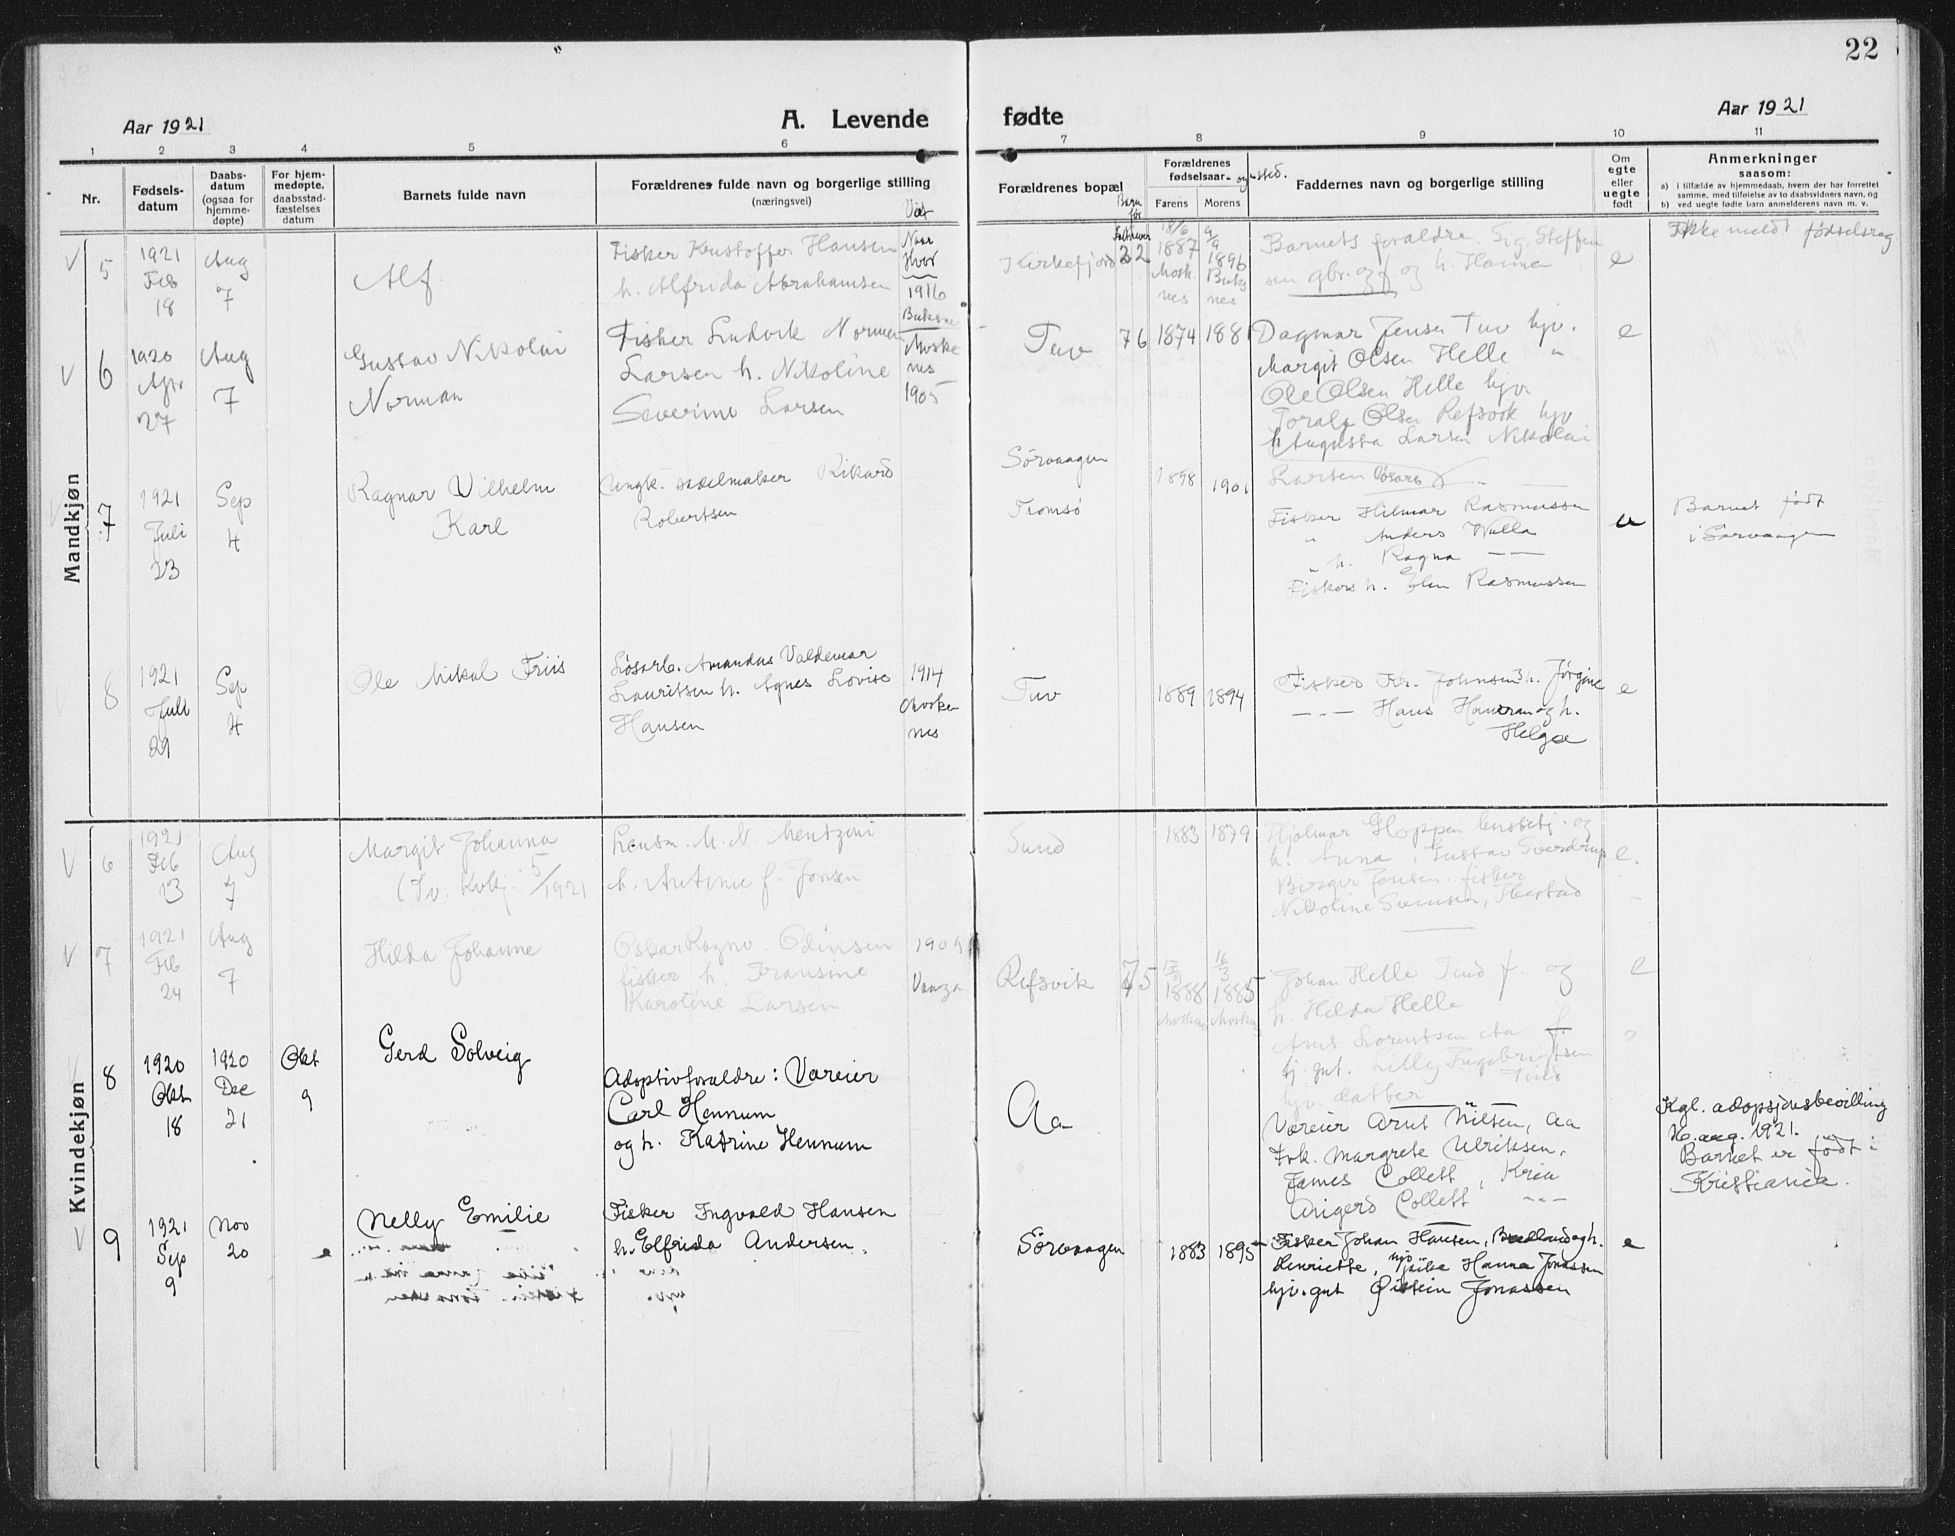 22
Aar 1921
A. Levende
fødte
Aar 1921
1 2 3 4 5 6 7 8 9 10 11
Nr.
Fødsels-
datum
Daabs-
datum
(ogsaa for
hjemme-
døpte)
For hjem-
medøpte,
daabsstad-
fæstelses
datum
Barnets fulde navn
Forældrenes fulde navn og borgerlige stilling
(næringsvei)
Viet
Naar
Hvor
Forældrenes bopæl
Barn
før
Forældrenes
fødselsaar - og sted.
Farens
Morens
Faddernes navn og borgerlige stilling
Om
egte
eller
uegte
født
Anmerkninger
saasom:
a) i tilfælde av hjemmedaab, hvem der har forrettet
samme, med tilføielse av to daabsvidners navn, og
b) ved uegte fødte barn anmelderens navn m. v.
Mandkjøn
5
1921
Feb
18
Aug
7
Alf
Fisker Kristoffer Hansen
h. Alfrida Abrahamsen
1916
Buksnes
Kirkefjord
22
18/6
1887
Mosk
nes
9/9
1896
Buks
nes
Barnets foraldre. Sig. Steffen
sen gbr. og f. og h. Hanna
e
Ikke meldt fødselsreg
6
1920
Apr
27
Aug
7
Gustav Nikolai
Norman
Fisker Ludvik Norman
Larsen h. Nikoline
Severine Larsen
Moske
nes
1905
Tuv
76
1874
1881
Dagmar Jensen Tuv hjv.
Margit Olsen Helle "
Ole Olsen Helle hjv
Toralf Olsen Refsvik hjv
h Augusta Larsen Nikolai
Larsen
e
7
1921
Juli
23
Sep
4
Ragnar Vilhelm
Karl
Ungk. sadelmaker Rikard
Robertsen
Sörvaagen
Tromsø
1898
1901
Fisker Hilmar Rasmussen
" Anders Walla
" h. Ragna — —
Fiskers h. Elen Rasmussen
u
Barnet født
i Sørvaagen
8
1921
Juli
29
Sep
4
Ole Mikal Friis
Løsarb. Amandus Valdemar
Lauritsen h. Agnes Lovise
Hansen
1914
Mosken
nes
Tuv
1889
1894
Fisker Kr. Johnsen h. Jørgine
— " — Hans Hansen og h.
Helga
e
Kvindekjøn
6
1921
Feb
13
Aug
7
Margit Johanna
5/1921
Lensm. M. N. Mentzoni
h. Antonie f. Jensen
Sund
1883
1879
Hjalmar Hoppen og
h. Anna. Gustav Sverdrup
Birger Jensen. fisker
Nikoline Svensen, Ibestad
e.
7
1921
Feb
24
Aug
7
Hilda Johanne
Oskar Ragnv. Odinsen
fisker h. Fransine
Karoline Larsen
Refsvik
75
1888
Mosken
16/3
1885
Mosken
Johan Helle Tind f. og
h. Hilda Helle
Arnt Lorentsen Aa f.
tj. gut. Lilly Ingebrigtsen
Tind
hjv. datter
e
8
1920
Okt
18
1920
Dec
21
Okt
9
Gerd Solveig
Adoptivforaldre: Væreier
Carl Hennum
og h. Katrine Hennum
Aa
Væreier Arnt Nilsen, Aa
Frk. Margrete Ulriksen, "
James Collett, Kria
Angerd Collett — " —
Kgl. adopsjonsbevilling
16. aug. 1921.
Barnet er født i
Kristiania.
9
1921
Sep
9
Nov
20
e
Nelly Emilie
Fisker Ingvald Hansen
h. Elfrida Andersen.
Sörvaagen
1883
1895
Fisker Johan Hansen, og h.
Henriette, Hanna Jonassen
hjv. gut Øistein Jonassen
e